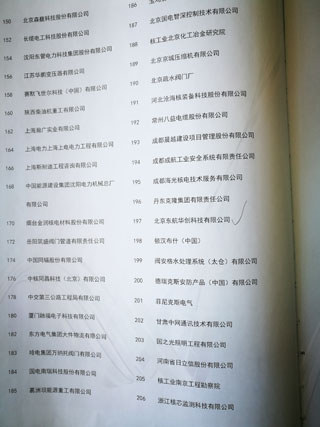 150 北京森馥科技股份有限公司
152 长缆电工科技股份有限公司
154 沈阳东管电力科技集团股份有限公司
156 江苏华鹏变压器有限公司
158 赛默飞世尔科技（中国）有限公司
160 陕西柴油机重工有限公司
162 上海良广实业有限公司
164 上海电力上海上电电力工程有限公司
166 上海斯耐迪工程咨询有限公司
168 中国能源建设集团沈阳电力机械总厂
有限公司
170 烟台金润核电材料股份有限公司
172 岳阳筑盛阀门管道有限责任公司
174 中国同辐股份有限公司
176 中核同昌科技（北京）有限公司
178 中交第三公路工程局有限公司
180 厦门纳福电子科技有限公司
182 东方电气集团大件物流有限公司
183 纯电集团万纳托阀门有限公司
184 国电南瑞科技股份有限公司
185 株洲时代新能源重工有限公司
186
187 北京国电智深控制技术有限公司
188 核工业北京化工冶金研究院
189 北京京城压缩机有限公司
190 北京疏水阀门厂
191 河北沧海核装备科技股份有限公司
192 常州八益电缆股份有限公司
193 成都晨越建设项目管理股份有限公司
194 成都成航工业安全系统有限责任公司
195 成都海光核电技术服务有限公司
196 丹东克隆集团有限责任公司
197 北京东航华创科技有限公司
198 翰汉布什（中国）
199 阔安格水处理系统（太仓）有限公司
200 德瑞克斯安防产品（中国）有限公司
201 菲尼克斯电气
202 甘肃中网通讯技术有限公司
203 国之光照明工程有限公司
204 河南省日立信股份有限公司
205 核工业南京工程勘察院
206 浙江核芯监测科技有限公司